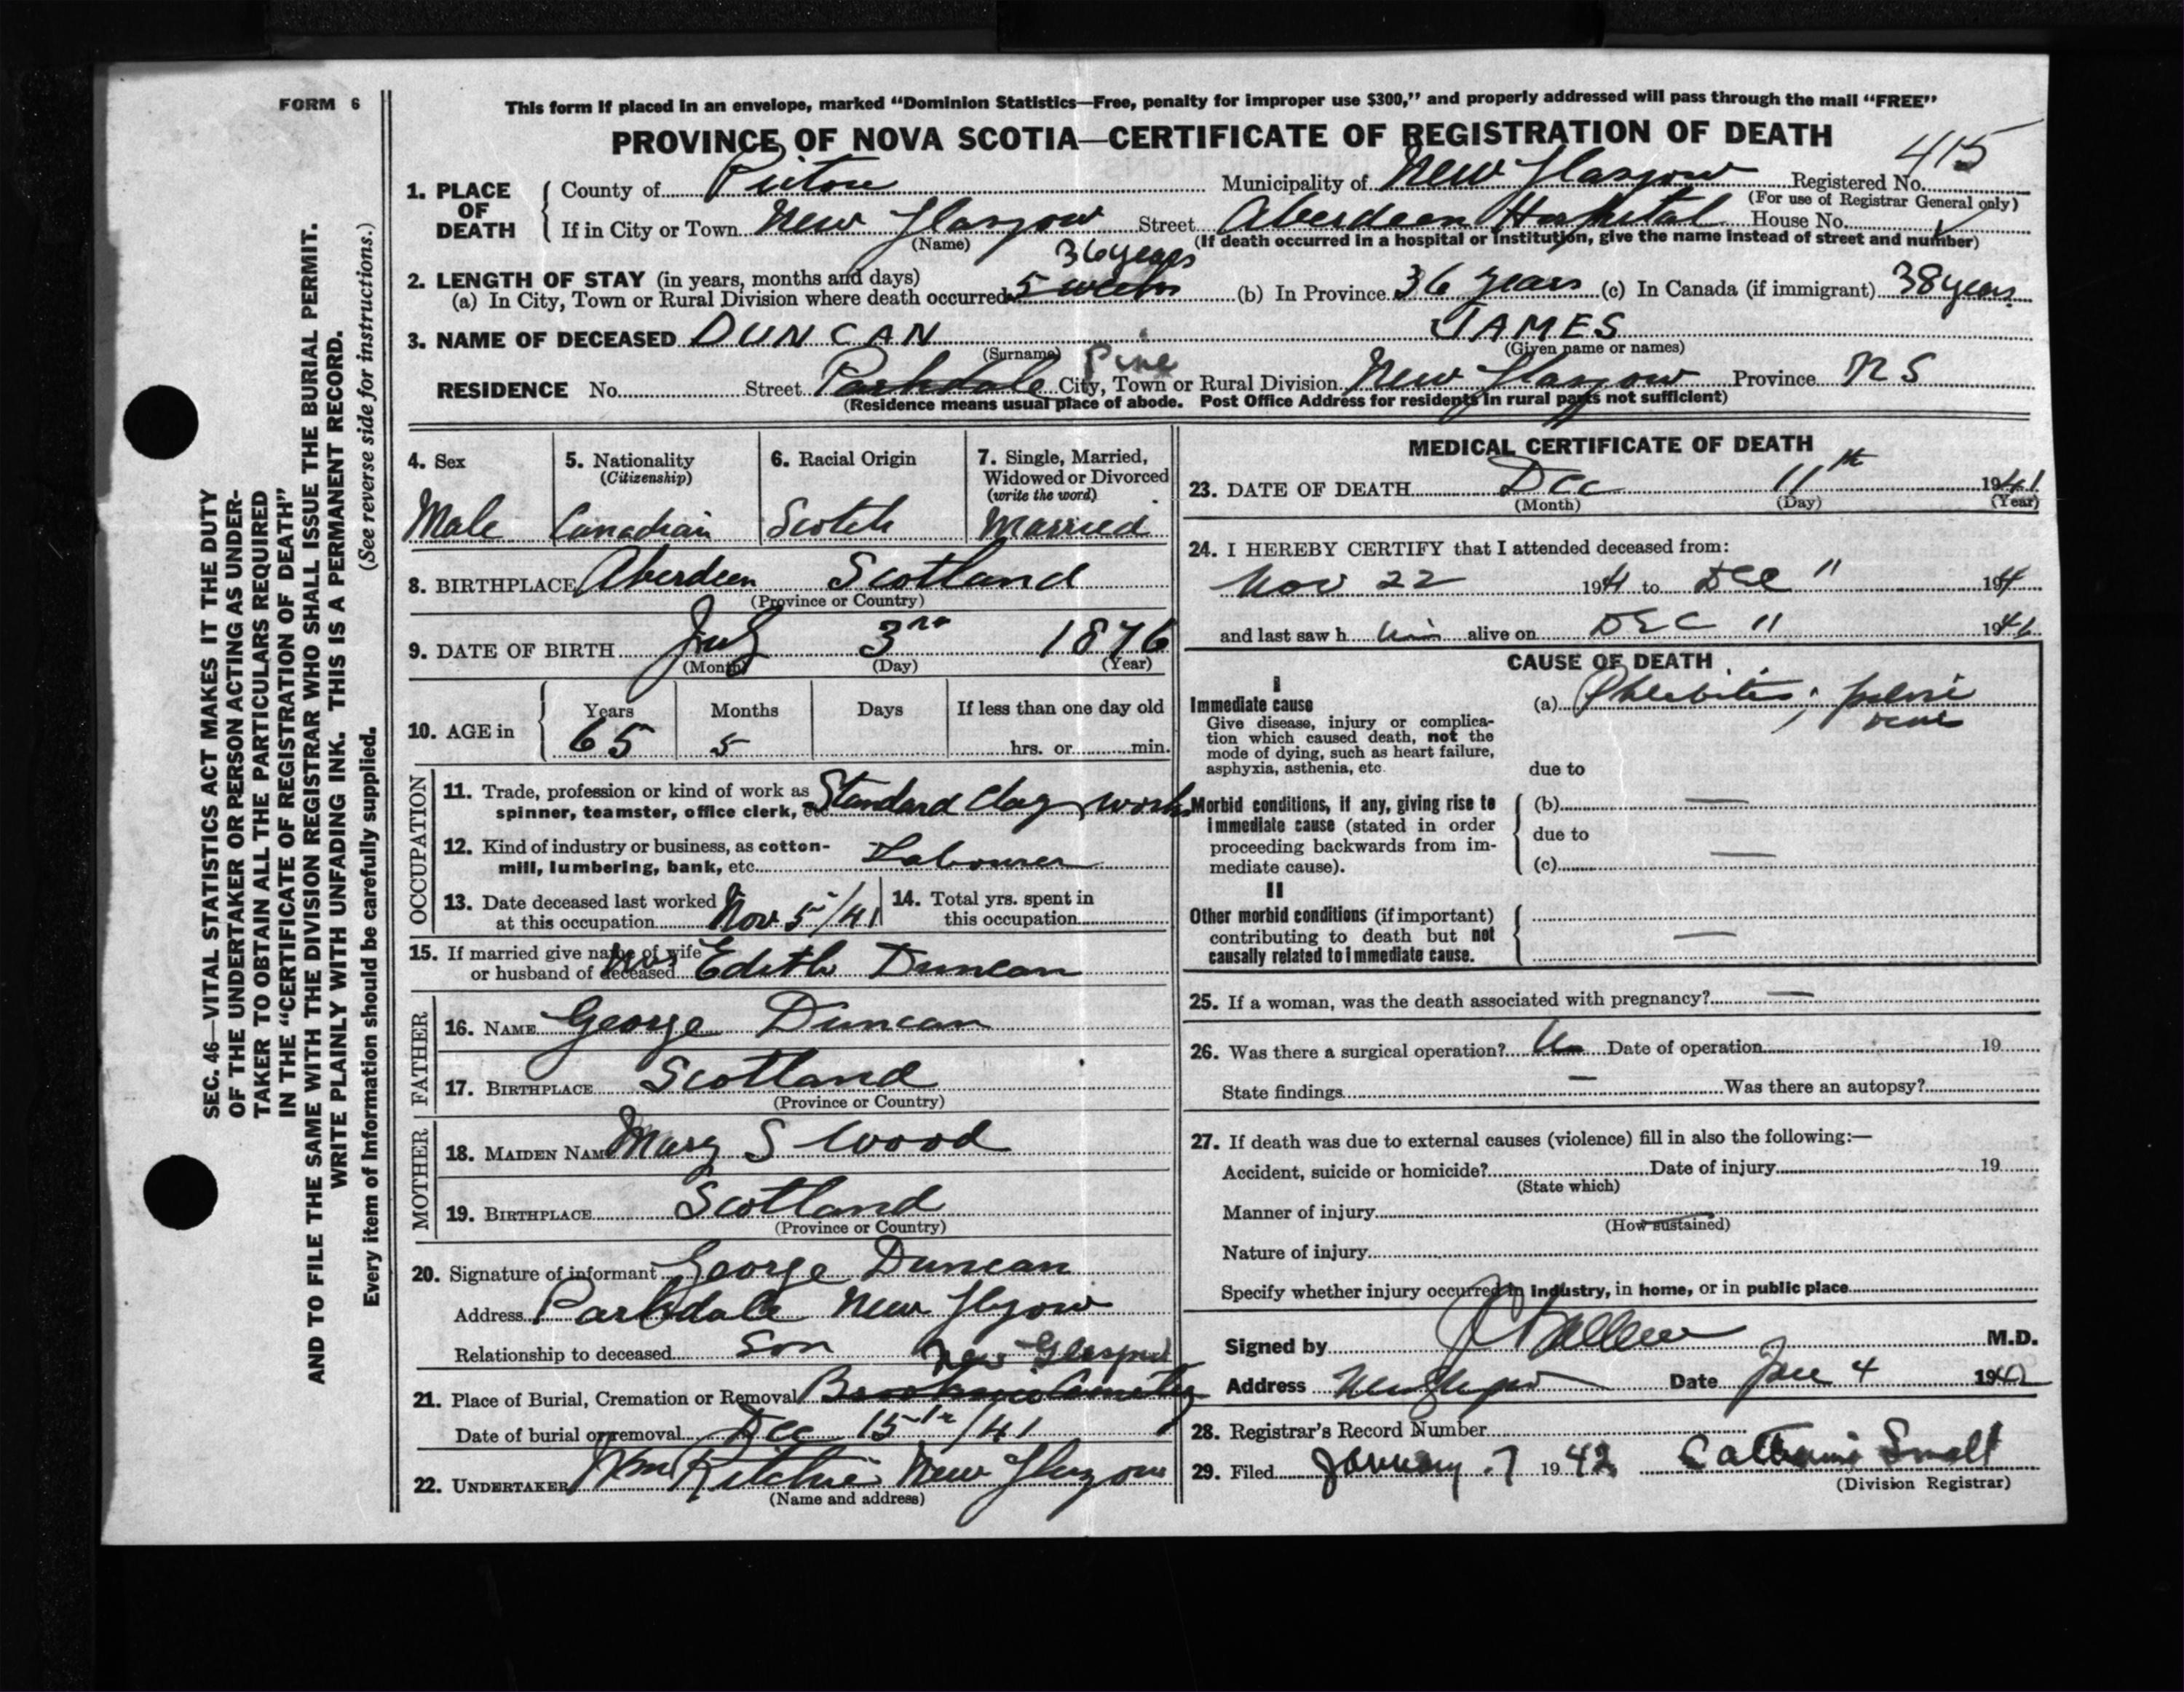 FORM 6
This form if placed in an envelope, marked "Dominion Statistics—Free, penalty for improper use $300," and properly addressed will pass through the mail "FREE"
PROVINCE OF NOVA SCOTIA—CERTIFICATE OF REGISTRATION OF DEATH
415
1. PLACE OF DEATH
County of Pictou Municipality of New Glasgow Registered No.
(For use of Registrar General only)
If in City or Town New Glasgow Street Aberdeen Hospital House No.
(Name) (If death occurred in a hospital or institution, give the name instead of street and number)
36 years
2. LENGTH OF STAY (in years, months and days)
(a) In City, Town or Rural Division where death occurred 5 weeks (b) In Province 36 years (c) In Canada (if immigrant) 38 years
3. NAME OF DECEASED DUNCAN JAMES
(Surname) (Given name or names)
Pine
RESIDENCE No. Street Parkdale City, Town or Rural Division New Glasgow Province N S
(Residence means usual place of abode. Post Office Address for residents in rural parts not sufficient)
4. Sex
Male
5. Nationality
(Citizenship)
Canadian
6. Racial Origin
Scotch
7. Single, Married,
Widowed or Divorced
(write the word)
Married
8. BIRTHPLACE Aberdeen Scotland
(Province or Country)
9. DATE OF BIRTH July 3rd 1876
(Month) (Day) (Year)
10. AGE in
Years Months Days If less than one day old
65 5 hrs. or min.
OCCUPATION
11. Trade, profession or kind of work as
spinner, teamster, office clerk, etc. Standard Clay works
12. Kind of industry or business, as cotton-
mill, lumbering, bank, etc. Labourer
13. Date deceased last worked
at this occupation Nov 5th/41
14. Total yrs. spent in
this occupation
15. If married give name of wife
or husband of deceased Mrs Edith Duncan
FATHER
16. NAME George Duncan
17. BIRTHPLACE Scotland
(Province or Country)
MOTHER
18. MAIDEN NAME Mary S Wood
19. BIRTHPLACE Scotland
(Province or Country)
20. Signature of informant George Duncan
Address Parkdale New Glasgow
Relationship to deceased Son
New Glasgow
21. Place of Burial, Cremation or Removal Cemetery
Date of burial or removal Dec 15th/41
22. UNDERTAKER Wm Ritchie New Glasgow
(Name and address)
MEDICAL CERTIFICATE OF DEATH
23. DATE OF DEATH Dec 11th 1941
(Month) (Day) (Year)
24. I HEREBY CERTIFY that I attended deceased from:
Nov 22 1941 to Dec 11 194
and last saw h im alive on DEC 11 194
CAUSE OF DEATH
I
Immediate cause
Give disease, injury or complica-
tion which caused death, not the
mode of dying, such as heart failure,
asphyxia, asthenia, etc.
(a) Phlebitis;
due to
Morbid conditions, if any, giving rise to
immediate cause (stated in order
proceeding backwards from im-
mediate cause).
(b) —
due to
(c) —
II
Other morbid conditions (if important)
contributing to death but not
causally related to immediate cause.
—
25. If a woman, was the death associated with pregnancy? —
26. Was there a surgical operation? Date of operation 19
State findings — Was there an autopsy?
27. If death was due to external causes (violence) fill in also the following:—
Accident, suicide or homicide? Date of injury 19
(State which)
Manner of injury
(How sustained)
Nature of injury
Specify whether injury occurred in industry, in home, or in public place
Signed by M.D.
Address New Glasgow Date Jan 4 1942
28. Registrar's Record Number
29. Filed January 7 1942 Catherine Small
(Division Registrar)
SEC. 46—VITAL STATISTICS ACT MAKES IT THE DUTY
OF THE UNDERTAKER OR PERSON ACTING AS UNDER-
TAKER TO OBTAIN ALL THE PARTICULARS REQUIRED
IN THE "CERTIFICATE OF REGISTRATION OF DEATH"
AND TO FILE THE SAME WITH THE DIVISION REGISTRAR WHO SHALL ISSUE THE BURIAL PERMIT.
WRITE PLAINLY WITH UNFADING INK. THIS IS A PERMANENT RECORD.
Every item of information should be carefully supplied. (See reverse side for instructions.)